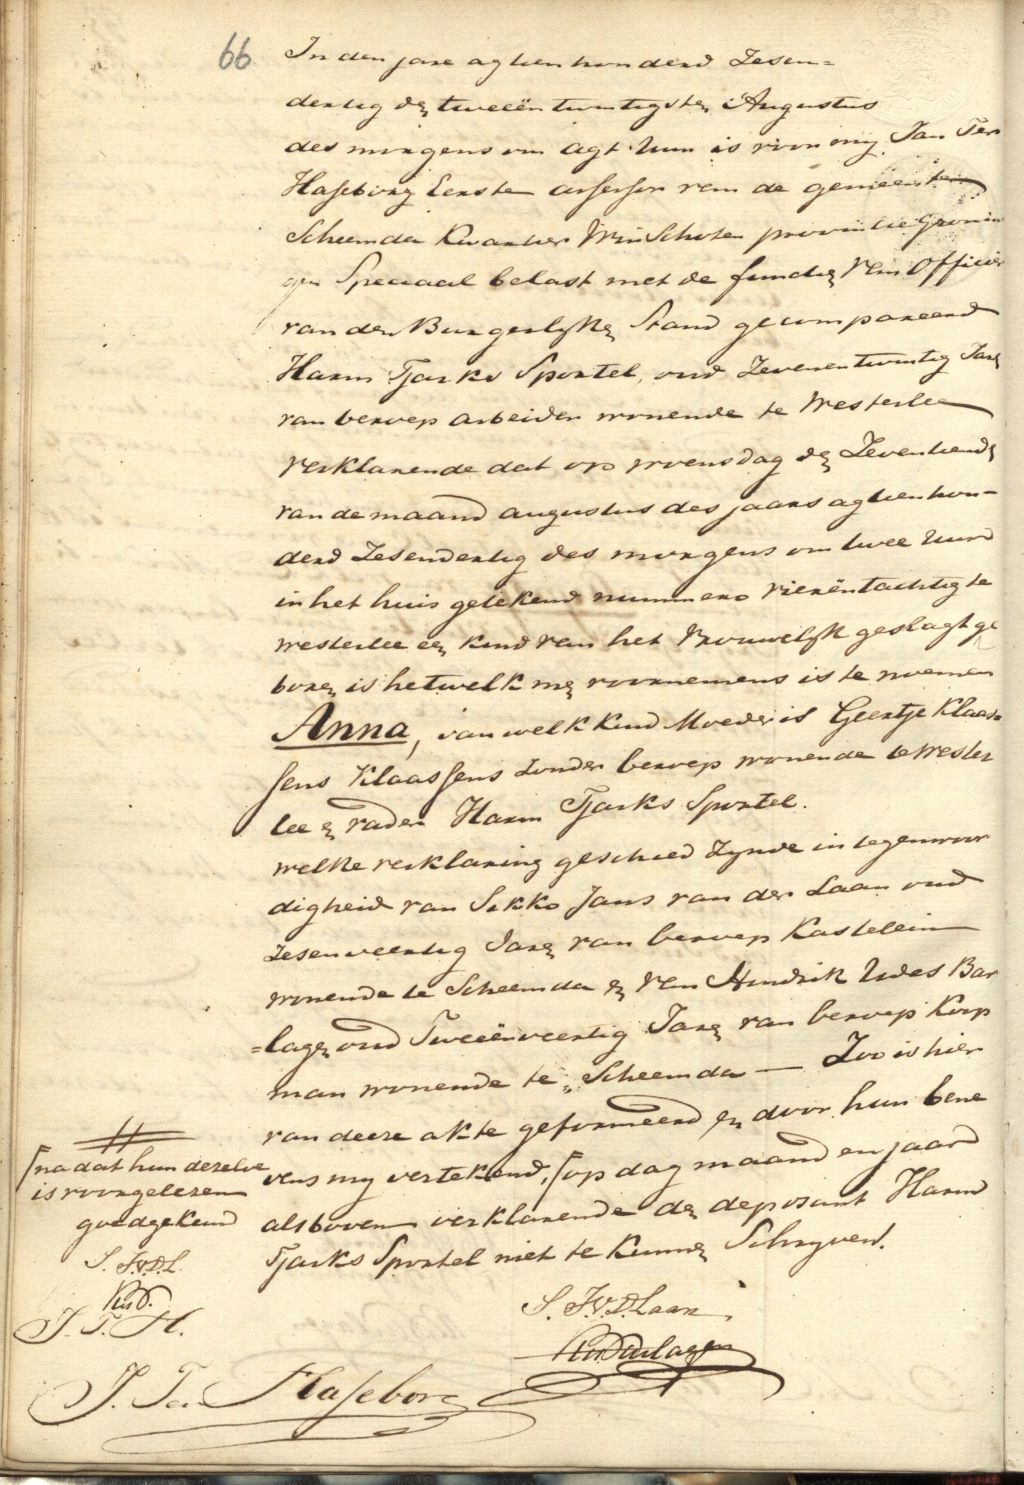 66
In den jare agtien honderd Zesen=
dertig den tweeën twintigsten Augustus
des morgens om agt Uur is voor my Jan Ter
Haseborg Eerste assessor van de gemeente
Scheemda Kwartier WinSchoten provintie Gronin
gen Speciaal belast met de functie Van Officier
van den Burgerlyken Stand gecompareerd
Harm Tjarks Sportel, oud Zevenentwintig Jare
van beroep arbeider wonende te Westerlee
Verklarende dat op woensdag den Zeventiende
van de maand augustus des jaars agtienhon=
derd Zesendertig des morgens om twee Uur
in het huis getekend nummero vierëntachtig te
westerlee een kind van het Vrouwelyk geslagt ge
boren is hetwelk men voornemens is te noemen
Anna, van welk Kind Moeder is Geertje Klaas=
sens Klaassens zonder beroep wonende te Wester
lee en vader Harm Tjarks Sportel.
welke verklaring geschied Zynde in tegenwoor
digheid van Sikko Jans van der Laan oud
zesenveertig Jaren van beroep Kastelein
wonende te Scheemda en Van Hindrik Udes Bar
=lagen oud Tweeënveertig Jaren van beroep Koop
man wonende te Scheemda — Zoo is hier
van deeze akte geformeerd en door hun bene
vens my vertekend, ſop dag maand en jaar
als boven verklarende de deposant Harm
Tjarks Sportel niet te Kunnen Schryven.
ſna dat hun dezelve
is voorgelezen
goedgekeurd
S. J.V.D.L.
J. T. H.
S. J.V.D. Laan
HUBarlagen
J. Ter Haseborg